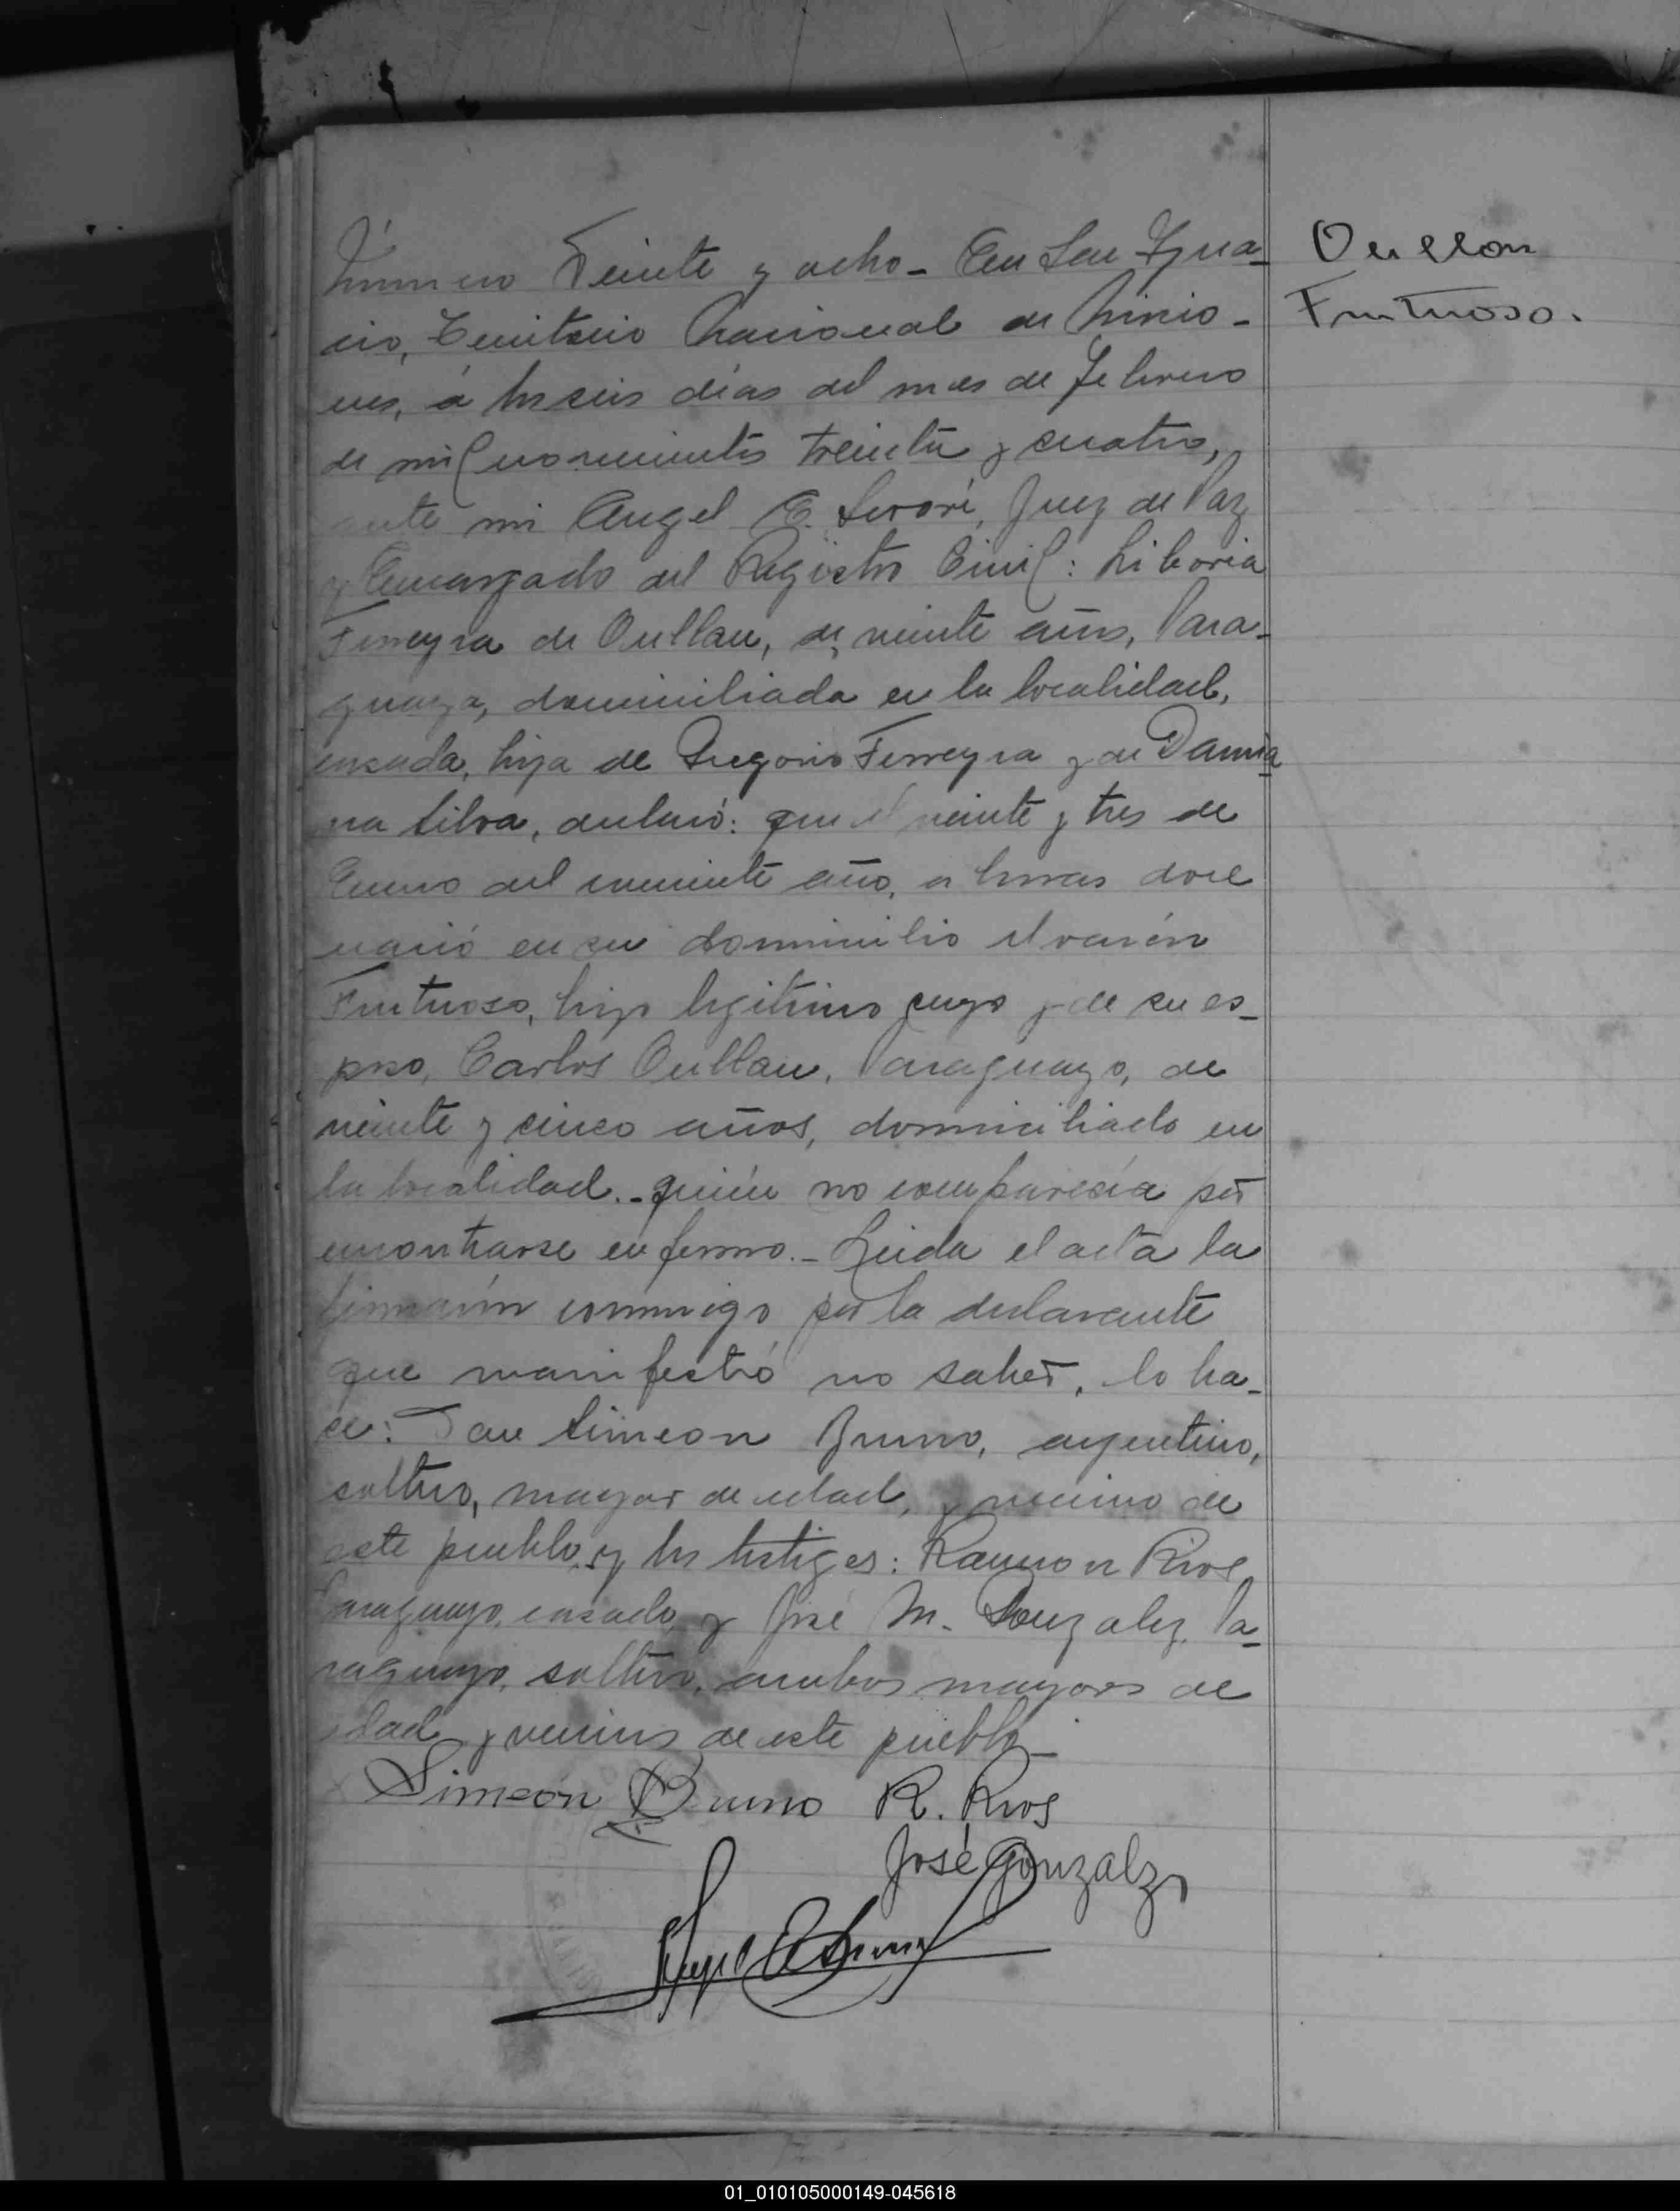 Número Veinte y ocho - En San Igna-
cio, Territorio Nacional de Misio-
nes, á los seis días del mes de Febrero
de mil novecientos treinta y cuatro,
ante mi Angel E. Sivori, Juez de Paz
y Encargado del Registro Civil: Liboria
Ferreyra de Ovellan, de veinte años, Para-
guaya, domiciliada en la localidad,
casada, hija de Gregorio Ferreyra y de Damia
na Silva, declaró: que el veinte y tres de
Enero del corriente año, a horas doce
nació en su domicilio el varón
Frutuoso, hijo legitimo suyo y de su es-
poso, Carlos Ovellan, Paraguayo, de
veinte y cinco años, domiciliado en
la localidad.- quién no comparecía por
encontrarse enfermo.- Leida el acta la
firmarón conmigo por la declarante
que manifestó no saber, lo ha-
ce: Don Simeon Bruno, argentino,
soltero, mayor de edad, y vecino de
este pueblo, y los testigos: Ramon Rios
Paraguayo, casado, y José M. Gonzalez, Pa-
raguayo, soltero, ambos mayores de
edad y vecinos de este pueblo -
Simeón Bruno R. Rios
José Gonzalz
Angel E Sivori
Ovellon
Frutuoso.
01_010105000149-045618